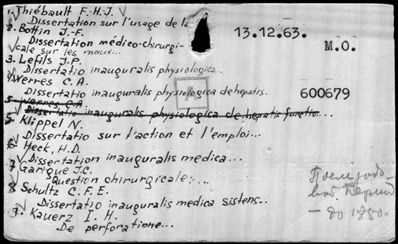 1. Thiébault F.-H.-J.
Dissertation sur l'usage de la
13.12.63.
2. Bottin J.-F.
Dissertation médico-chirurgi-
cale sur les maux...
M.O.
3. Lefils J.P.
Dissertatio inauguralis physiologica...
4 Werres C.A.
Dissertatio inauguralis physiologica de hepatis.
600679
5 Werres C.A.
Dissertatio inauguralis physiologica de hepatis functio...
5. Klippel N.
Dissertatio sur l'action et l'emploi...
6 Heck, H.D.
Dissertation inauguralis medica...
7 Garigue J.C.
Question chirurgicale:...
8 Schultz C.F.E.
Dissertatio inauguralis medica sistens...
9. Kauerz I.H.
De perforatione...
- до 1850.